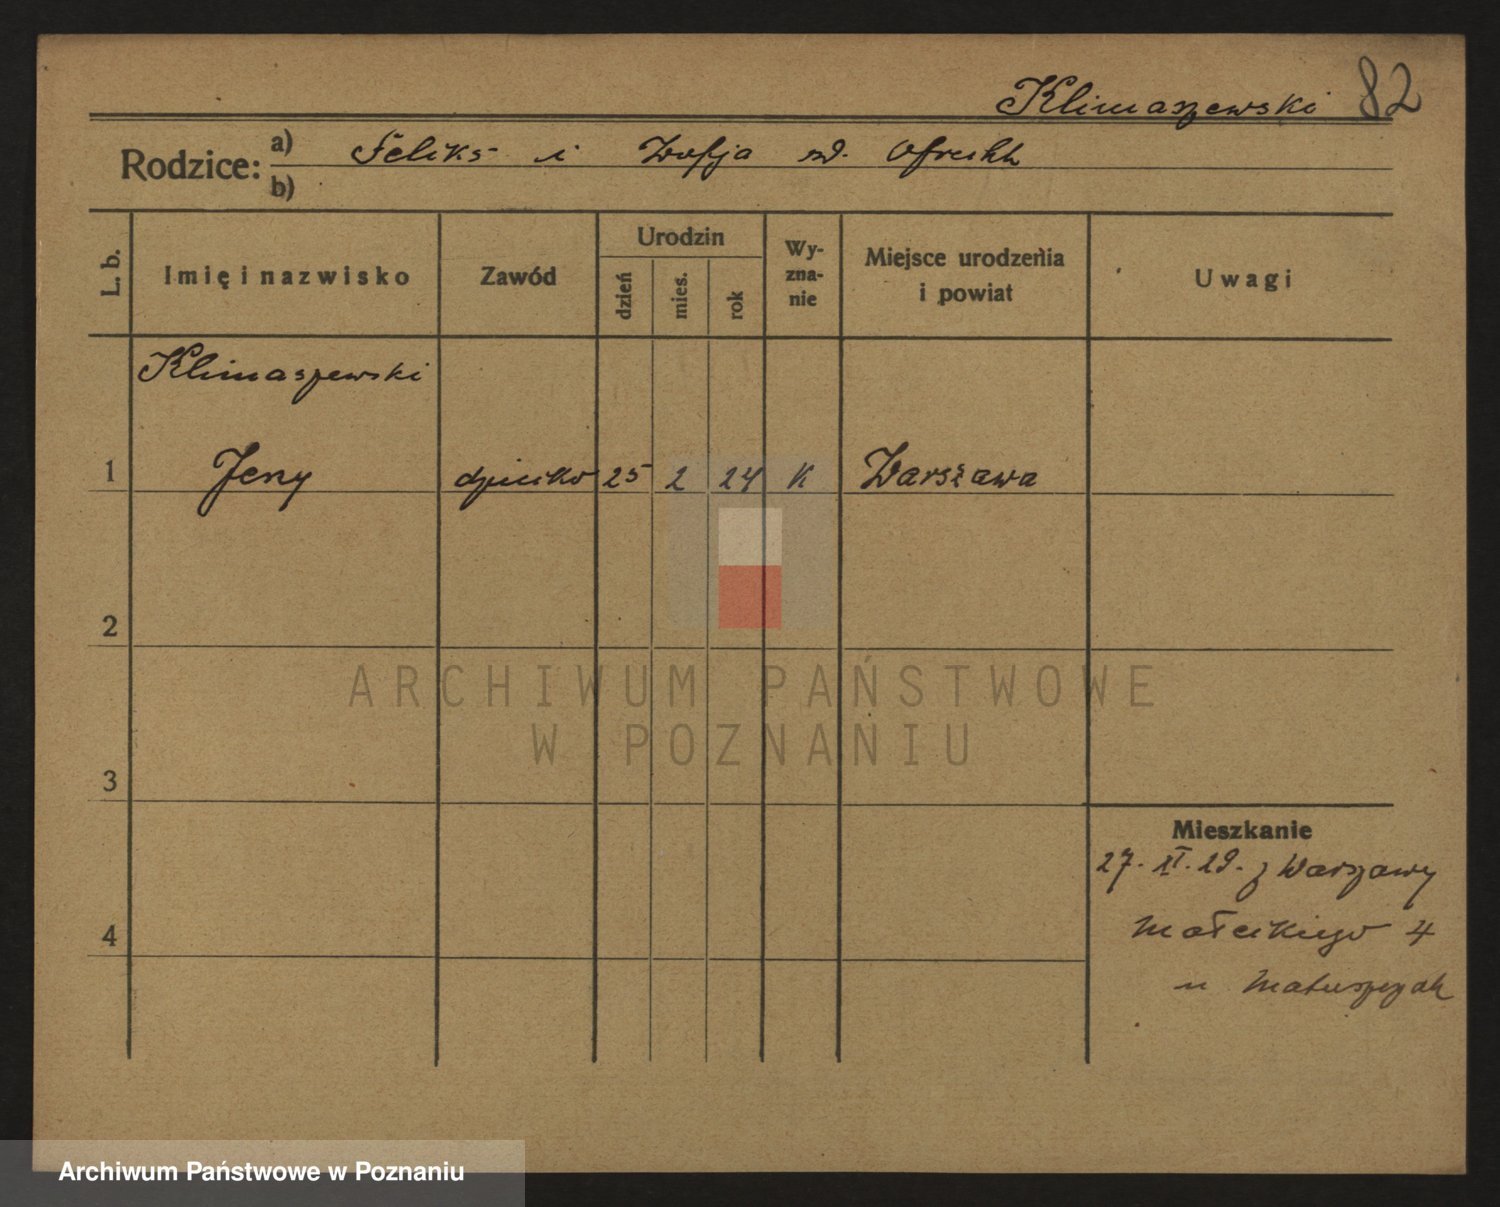 Klimaszewski 82
Rodzice: a) Feliks i Zofja zd.
b)
L. b.
Imię i nazwisko
Zawód
Urodzin
dzień
mies.
rok
Wy-
zna-
nie
Miejsce urodzenia
i powiat
Uwagi
Klimaszewski
1 Jerzy dziecko 25 2 24 K Warszawa
2
3
4
Mieszkanie
27. XI. 29. z Warszawy
Małeckiego 4
u Matuszczak
ARCHIWUM PAŃSTWOWE
W POZNANIU
Archiwum Państwowe w Poznaniu